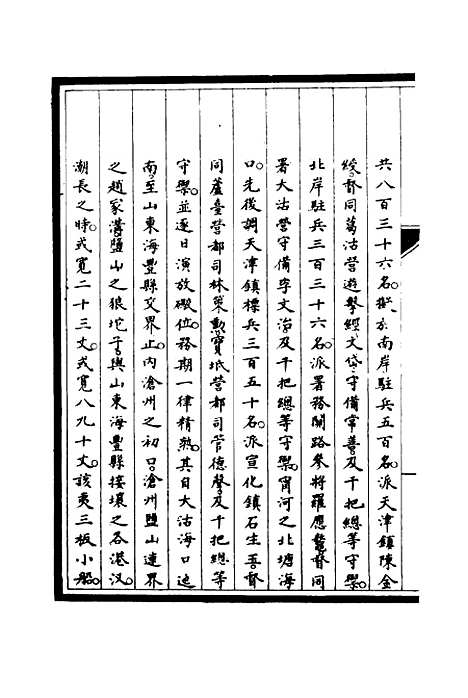 共八百三十六名。擬於南岸駐兵五百名。派天津鎮陳金
綬。督同葛沽營遊擊經文岱。守備常善。及千把總等守禦。
北岸駐兵三百三十六名。派署務關路參將羅應鼇。督同
署大沽營守備李文治及千把總等守禦。甯河之北塘海
口。先後調天津鎮標兵三百五十名。派宣化鎮石生玉。督
同蘆臺營都司林策勳。寶坻營都司管德馨。及千把總等
守禦。並逐日演放礮位。務期一律精熟。其自大沽海口迤
南。至山東海豐縣交界止。內滄州之初口。滄州鹽山連界
之趙家溝。鹽山之狼坨子。與山東海豐縣接壤之各港汊。
潮長之時。或寬二十三丈。或寬八九十丈。該夷三板小船。